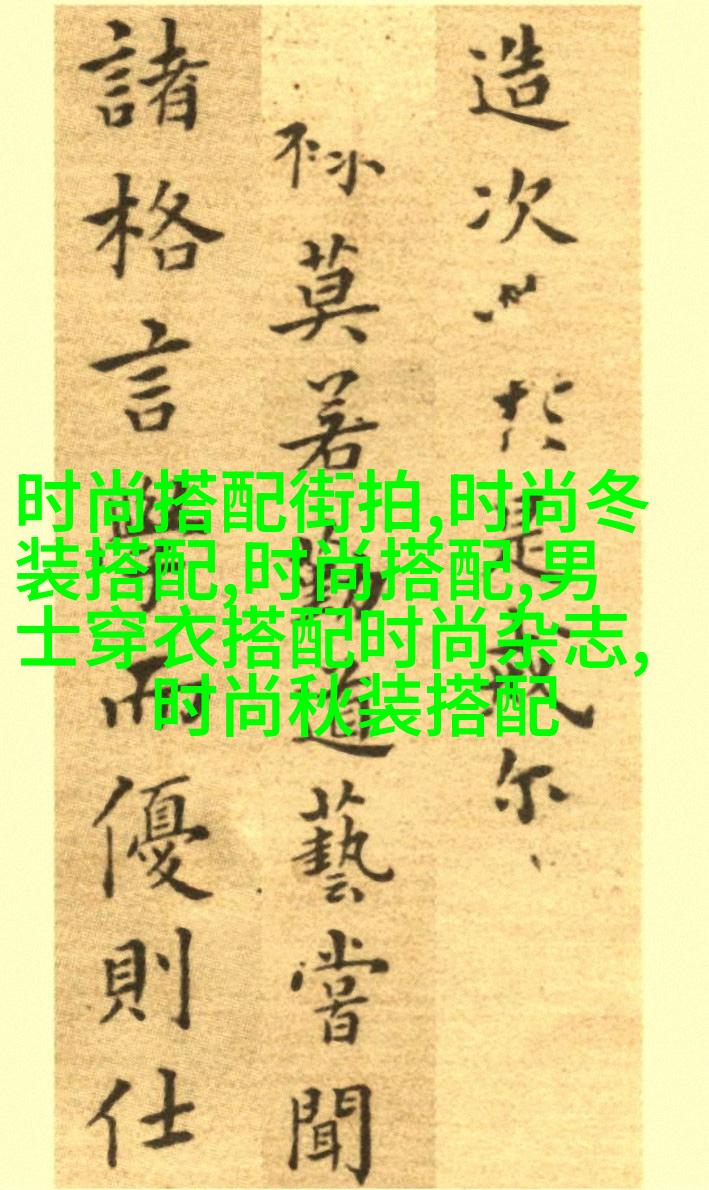 造次於是尔
莫若道藝嘗聞
諸格言學而優則仕
时尚搭配街拍,时尚冬
装搭配,时尚搭配,男
士穿衣搭配时尚杂志,
时尚秋装搭配